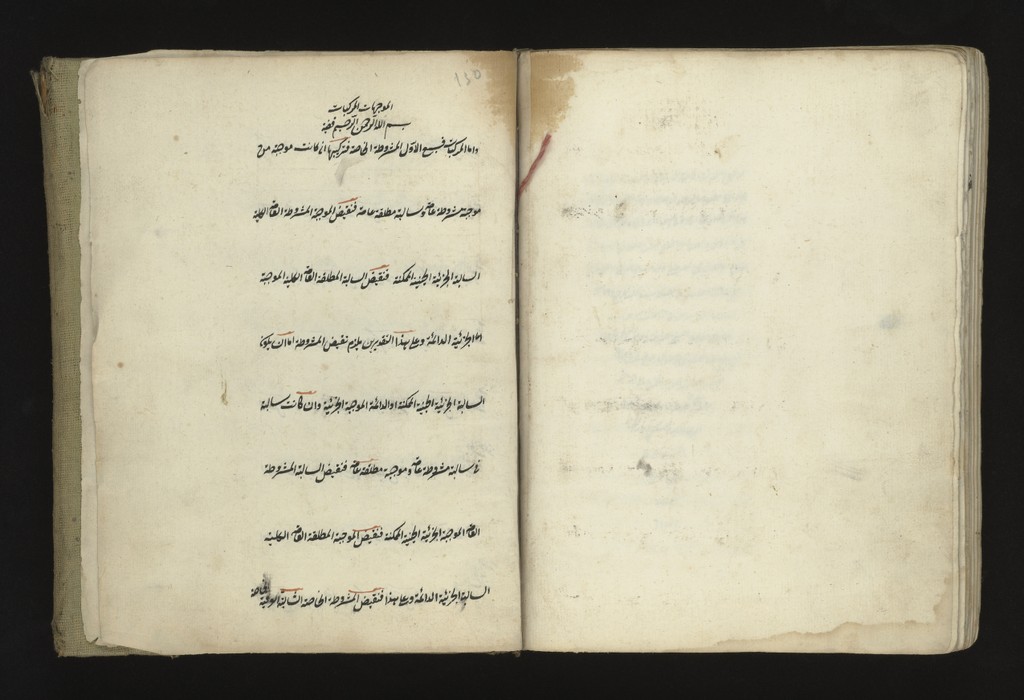 130
الموجهات المركبات
بسم الله الرحمن الرحيم
واما المركبات فسبع الاول المشروطة الخاصة فتركيبها ان كانت موجبة من
موجبة مشروطة عامة وسالبة مطلقة عامة فنقيض الموجبة المشروطة العامة الكلية
السالبة الجزئية الحينية الممكنة فنقيض السالبة المطلقة العامة الكلية الموجبة
الجزئية الدائمة وعلى هذا التقدير يلزم نقيض المشروطة اما ان يكون
السالبة الجزئية الحينية الممكنة او الدائمة الموجبة الجزئية وان كانت سالبة
سالبة مشروطة عامة وموجبة مطلقة عامة فنقيض السالبة المشروطة
العامة الموجبة الجزئية الحينية الممكنة فنقيض الموجبة المطلقة العامة الكلية
السالبة الجزئية الدائمة وعلى هذا فنقيض المشروطة الخاصة الثانية